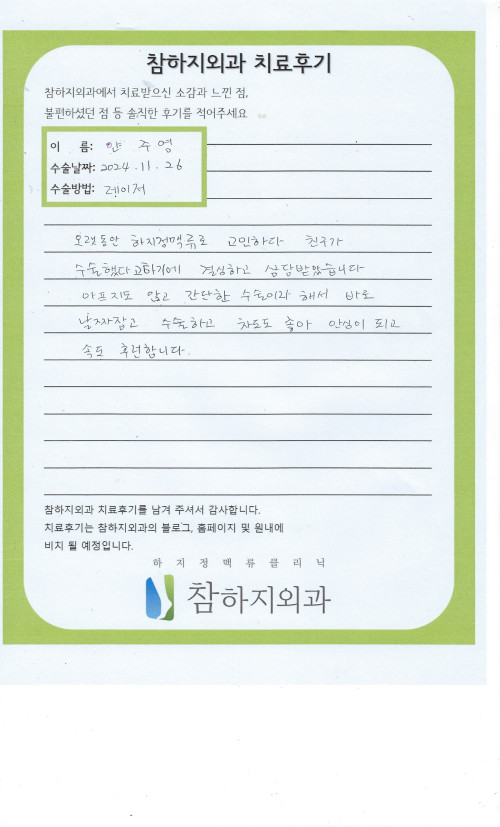 참하지외과 치료후기
참하지외과에서 치료받으신 소감과 느낀 점,
불편하셨던 점 등 솔직한 후기를 적어주세요
이 름: 안 주 영
수술날짜: 2024. 11. 26
수술방법: 레이저
오랫동안 하지정맥류로 고민하다 친구가
수술했다고하기에 결심하고 상담받았습니다
아프지도 않고 간단한 수술이라 해서 바로
날짜잡고 수술하고 차도도 좋아 안심이 되고
속도 후련합니다.
참하지외과 치료후기를 남겨 주셔서 감사합니다.
치료후기는 참하지외과의 블로그, 홈페이지 및 원내에
비치 될 예정입니다.
하지정맥류클리닉
참하지외과